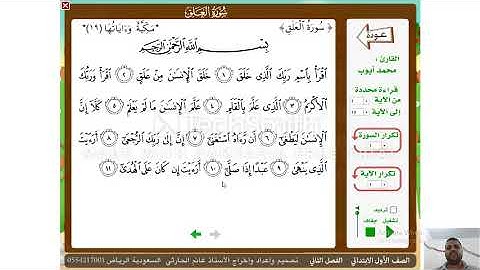 سُورَةُ العَلَقِ
﴿ سُورَةُ العَلَقِ ﴾ "مَكِّيَّة وَءَايَاتُهَا (١٩)"
بِسْمِ اللَّهِ الرَّحْمَٰنِ الرَّحِيمِ
ٱقۡرَأۡ بِٱسۡمِ رَبِّكَ ٱلَّذِى خَلَقَ ١ خَلَقَ ٱلۡإِنسَٰنَ مِنۡ عَلَقٍ ٢ ٱقۡرَأۡ وَرَبُّكَ
ٱلۡأَكۡرَمُ ٣ ٱلَّذِى عَلَّمَ بِٱلۡقَلَمِ ٤ عَلَّمَ ٱلۡإِنسَٰنَ مَا لَمۡ يَعۡلَمۡ ٥ كَلَّآ إِنَّ
ٱلۡإِنسَٰنَ لَيَطۡغَىٰٓ ٦ أَن رَّءَاهُ ٱسۡتَغۡنَىٰٓ ٧ إِنَّ إِلَىٰ رَبِّكَ ٱلرُّجۡعَىٰٓ ٨ أَرَءَيۡتَ
ٱلَّذِى يَنۡهَىٰ ٩ عَبۡدًا إِذَا صَلَّىٰٓ ١٠ أَرَءَيۡتَ إِن كَانَ عَلَى ٱلۡهُدَىٰٓ ١١
عودة
القارئ :
محمد أيوب
قراءة محددة
من الآية
إلى الآية
تكرار السورة
تكرار الآية
ترديد
تشغيل إيقاف
الصف الأول الابتدائي الفصل الثاني تصميم وإعداد وإخراج الأستاذ غانم الحارثي السعودية الرياض 0554217001